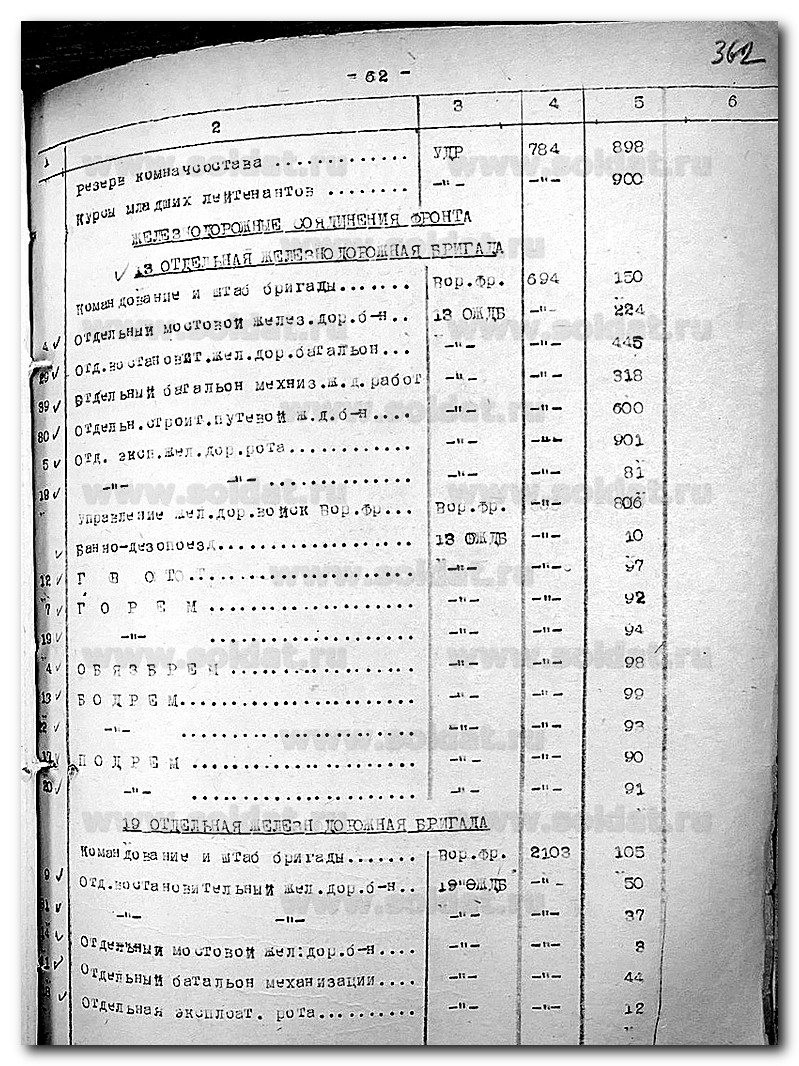 362
- 62 -
1 2 3 4 5 6
Резерв комначсостава ............ УДР 784 898
Курсы младших лейтенантов ........ -"- -"- 900
ЖЕЛЕЗНОДОРОЖНЫЕ СОЕДИНЕНИЯ ФРОНТА
✓ 13 ОТДЕЛЬНАЯ ЖЕЛЕЗНОДОРОЖНАЯ БРИГАДА
Командование и штаб бригады....... Вор.Фр. 694 150
4 ✓ Отдельный мостовой желез.дор.б-н.. 13 ОЖДБ -"- 224
29 ✓ Отд.востановит.жел.дор.батальон... -"- -"- 445
39 ✓ Отдельный батальон мехниз.ж.д.работ -"- -"- 318
80 ✓ Отдельн.строит.путевой ж.д.б-н.... -"- -"- 600
5 ✓ Отд. эксп.жел.дор.рота............ -"- -"- 901
19 ✓ -"- -"- ............... -"- -"- 81
Управление жел.дор.войск Вор.Фр... Вор.Фр. -"- 806
✓ Банно-дезопоезд.................... 13 ОЖДБ -"- 10
12 ✓ Г В ОТО.Г....................... -"- -"- 97
7 ✓ Г О Р Е М ...................... -"- -"- 92
19 ✓ -"- ...................... -"- -"- 94
4 ✓ О Б Я З Б Р Е М .................... -"- -"- 98
13 ✓ В О Д Р Е М........................ -"- -"- 99
✓ -"- ......................... -"- -"- 93
17 ✓ П О Д Р Е М ........................ -"- -"- 90
20 ✓ -"- ........................ -"- -"- 91
19 ОТДЕЛЬНАЯ ЖЕЛЕЗНОДОРОЖНАЯ БРИГАДА
Командование и штаб бригады....... Вор.Фр. 2103 105
9 ✓ Отд.востановительный жел.дор.б-н.. 19 ОЖДБ -"- 50
✓ -"- -"- -"- -"- 37
✓ Отдельный мостовой жел:дор.б-н.... -"- -"- 3
✓ Отдельный батальон механизации.... -"- -"- 44
✓ Отдельная эксплоат. рота.......... -"- -"- 12
www.soldat.ru